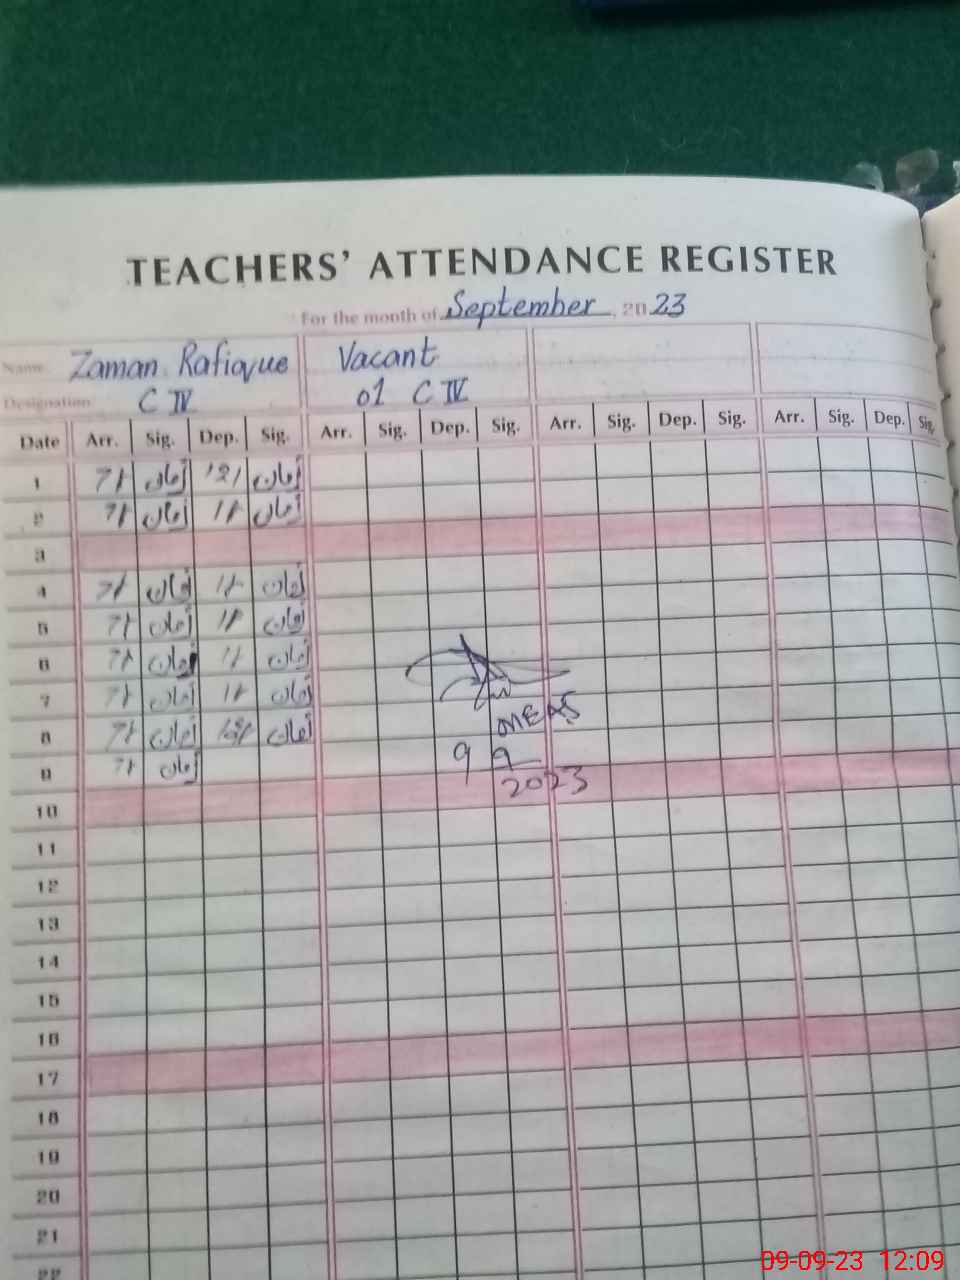 TEACHERS' ATTENDANCE REGISTER
For the month of September, 2023
Name Zaman Rafique Vacant
Designation C IV 01 C IV
Date Arr. Sig. Dep. Sig. Arr. Sig. Dep. Sig. Arr. Sig. Dep. Sig. Arr. Sig. Dep. Sig.
1 زمان زمان
2 زمان زمان
3
4 زمان زمان
5 زمان زمان
6 زمان زمان
7 زمان زمان
8 زمان زمان
9 زمان 9 9
2023
10
11
12
13
14
15
16
17
18
19
20
21
22
09-09-23 12:09